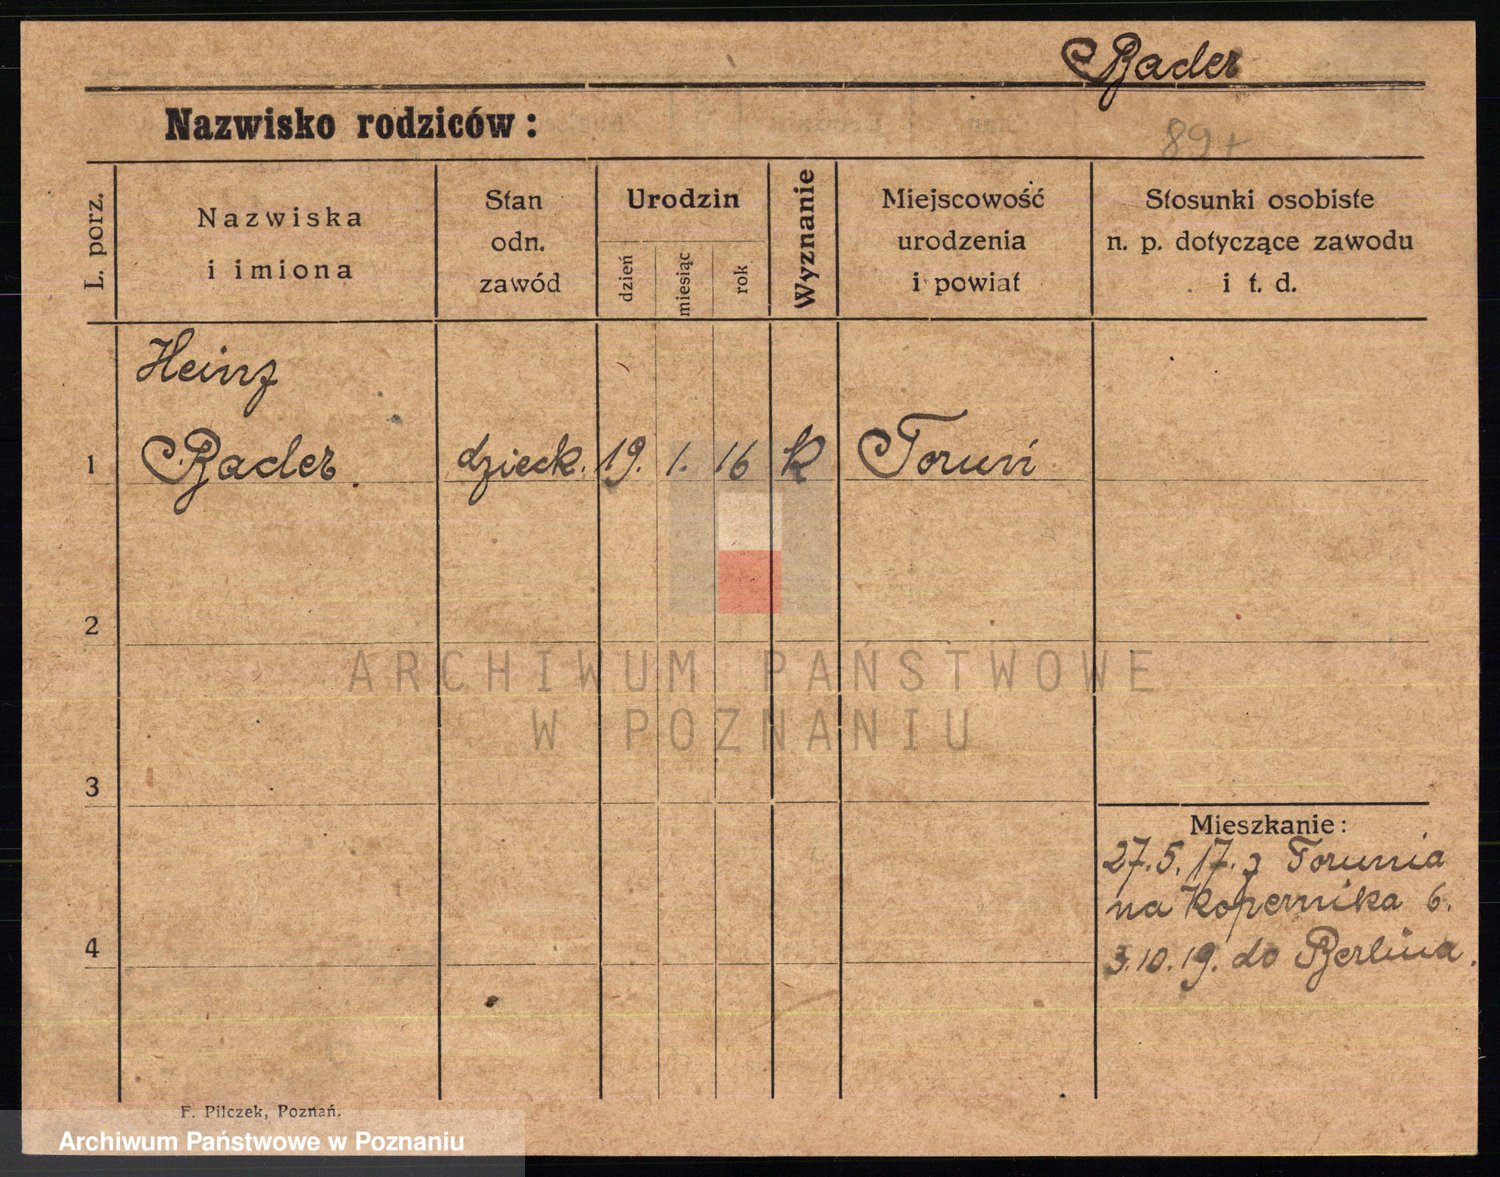 Bader
Nazwisko rodziców:
89+
L. porz.
Nazwiska
i imiona
Stan
odn.
zawód
Urodzin
dzień
miesiąc
rok
Wyznanie
Miejscowość
urodzenia
i powiat
Stosunki osobiste
n. p. dotyczące zawodu
i t. d.
Heinz
1 Bader dzieck. 19. 1. 16 k Toruń
2
3
4
Mieszkanie:
27.5.17. z Torunia
na Kopernika 6.
3.10.19. do Berlina.
F. Pilczek, Poznań.
ARCHIWUM PAŃSTWOWE
W POZNANIU
Archiwum Państwowe w Poznaniu